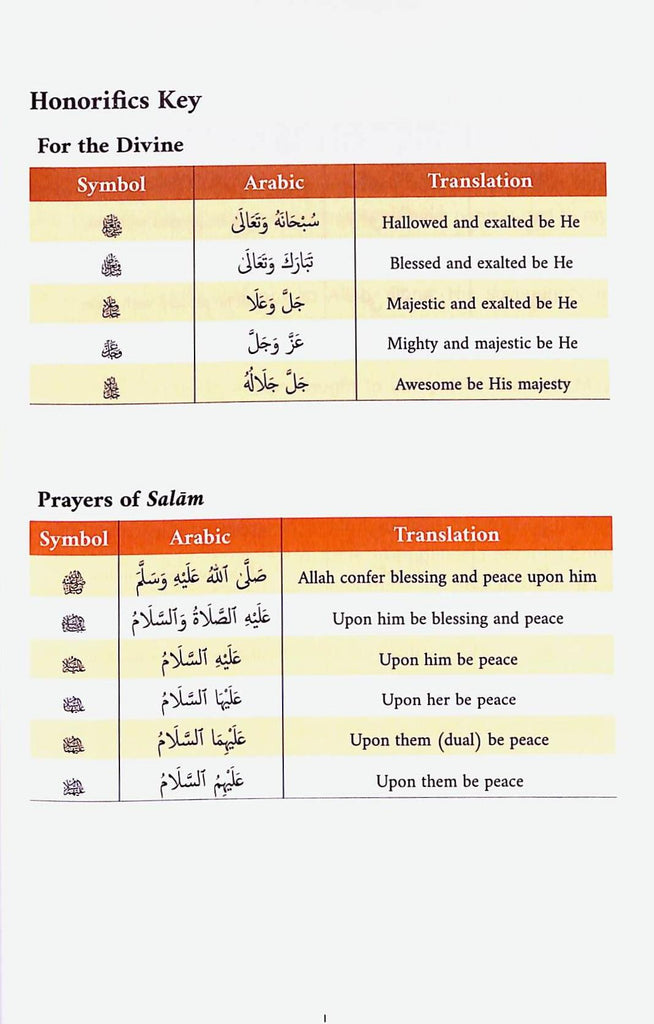 Honorifics Key
For the Divine
Symbol Arabic Translation
سُبْحَانَهُ وَتَعَالَى Hallowed and exalted be He
تَبَارَكَ وَتَعَالَى Blessed and exalted be He
جَلَّ وَعَلَا Majestic and exalted be He
عَزَّ وَجَلَّ Mighty and majestic be He
جَلَّ جَلَالُهُ Awesome be His majesty
Prayers of Salām
Symbol Arabic Translation
صَلَّى ٱللهُ عَلَيْهِ وَسَلَّمَ Allah confer blessing and peace upon him
عَلَيْهِ ٱلصَّلَاةُ وَٱلسَّلَامُ Upon him be blessing and peace
عَلَيْهِ ٱلسَّلَامُ Upon him be peace
عَلَيْهَا ٱلسَّلَامُ Upon her be peace
عَلَيْهِمَا ٱلسَّلَامُ Upon them (dual) be peace
عَلَيْهِمُ ٱلسَّلَامُ Upon them be peace
I